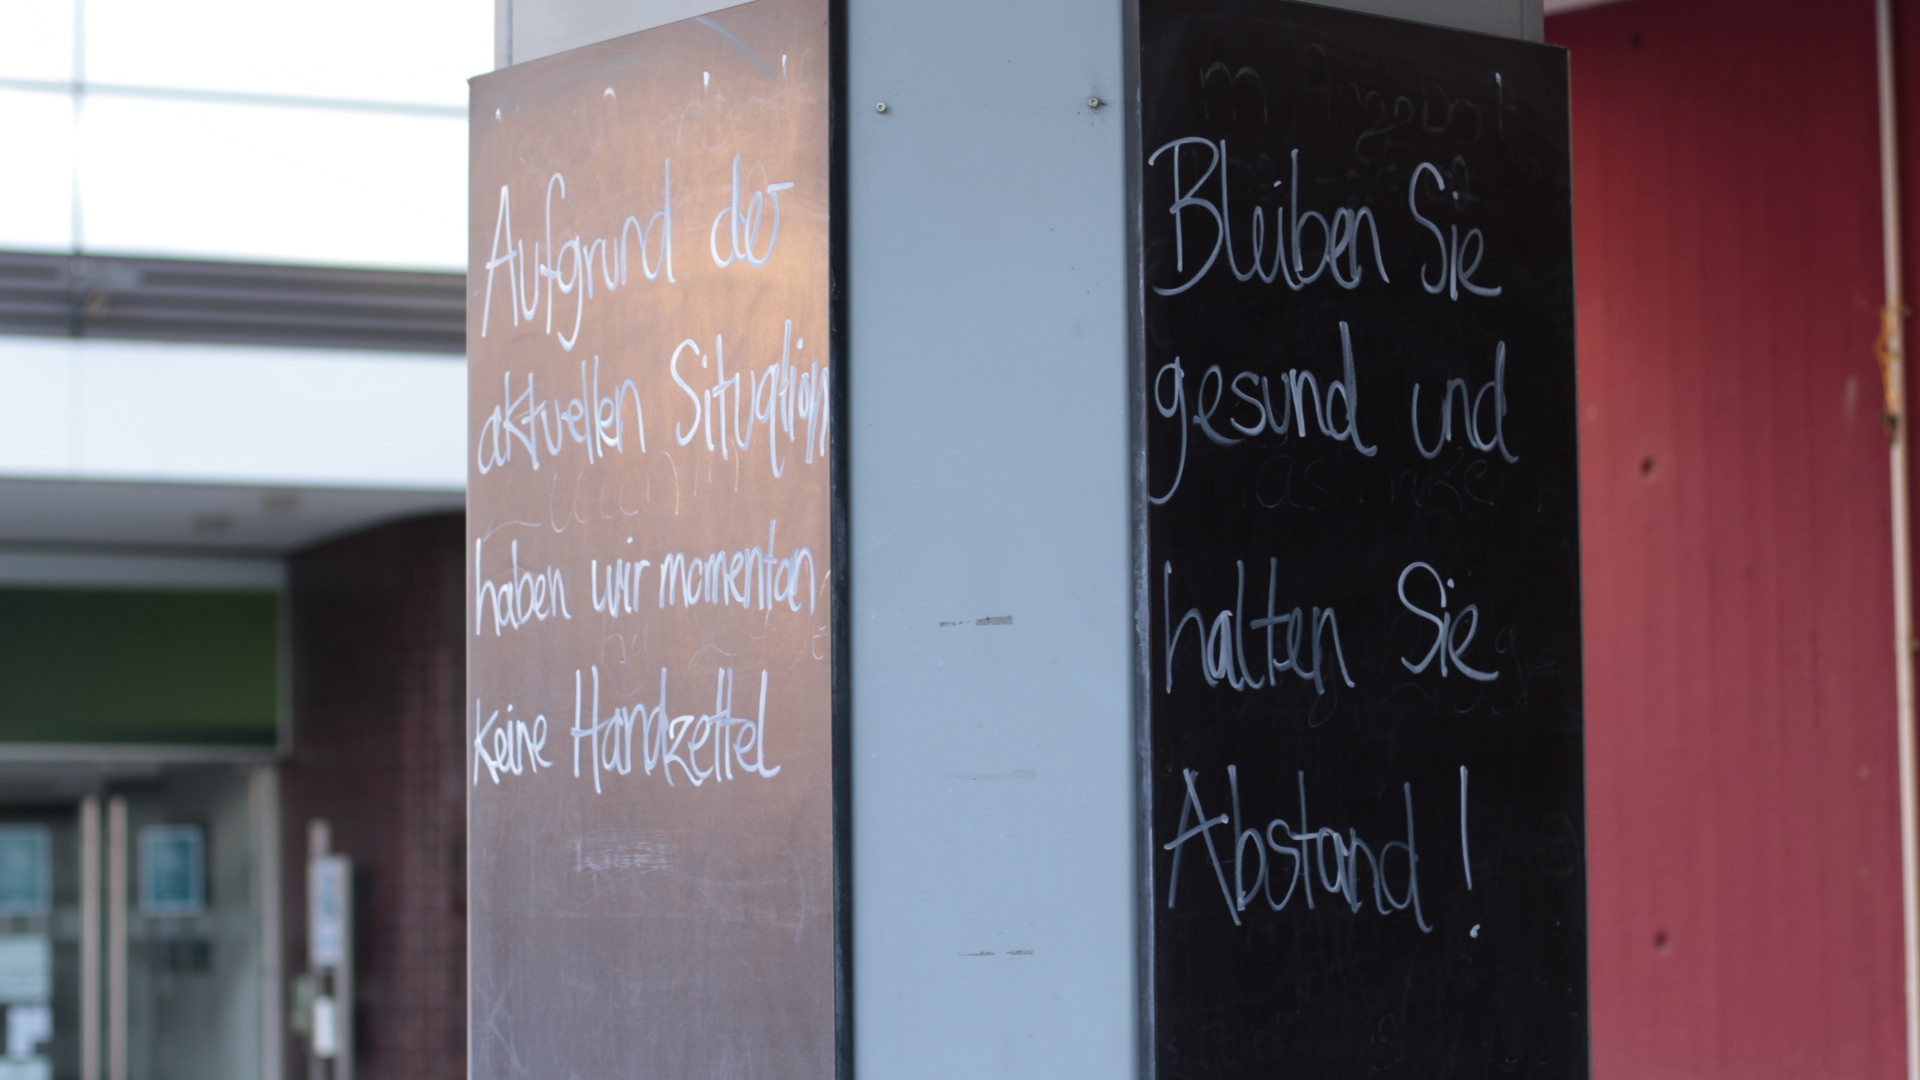 Aufgrund der
aktuellen Situation
haben wir momentan
keine Handzettel
Bleiben Sie
gesund und
halten Sie
Abstand!